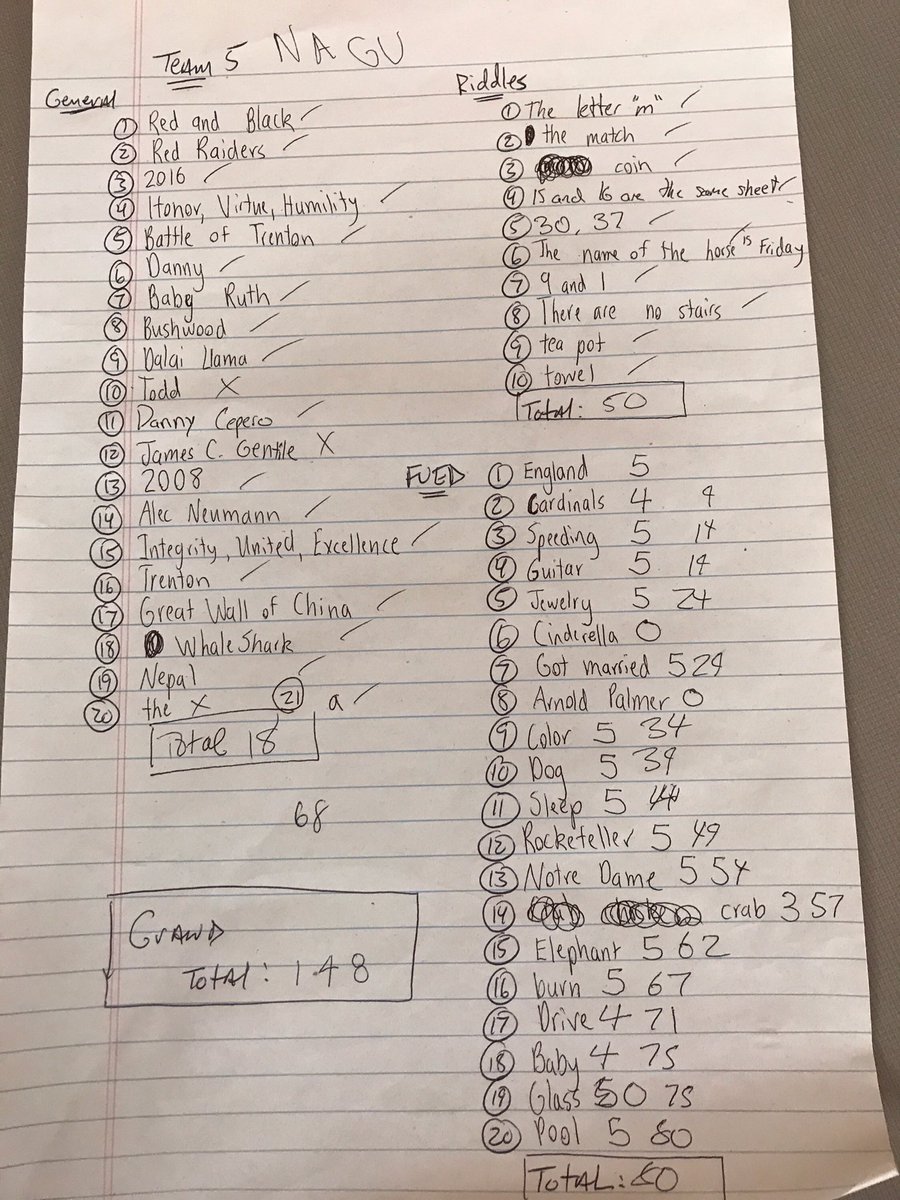 Team 5 NAGU
General
① Red and Black ✓
② Red Raiders ✓
③ 2016 ✓
④ Honor, Virtue, Humility ✓
⑤ Battle of Trenton ✓
⑥ Danny ✓
⑦ Baby Ruth ✓
⑧ Bushwood ✓
⑨ Dalai Llama ✓
⑩ Todd X
⑪ Danny Cepero ✓
⑫ James C. Gentile X
⑬ 2008 ✓
⑭ Alec Neumann ✓
⑮ Integrity, United, Excellence ✓
⑯ Trenton ✓
⑰ Great Wall of China ✓
⑱ Whale Shark ✓
⑲ Nepal ✓
⑳ the X ㉑ a ✓
Total 18
68
Grand
Total: 148
Riddles
① The letter "m" ✓
② the match ✓
③ coin ✓
④ 15 and 16 are the same sheet ✓
⑤ 30, 37 ✓
⑥ The name of the horse is Friday ✓
⑦ 9 and 1 ✓
⑧ There are no stairs ✓
⑨ tea pot ✓
⑩ towel ✓
Total: 50
FUED
① England 5
② Cardinals 4 9
③ Speeding 5 14
④ Guitar 5 19
⑤ Jewelry 5 24
⑥ Cinderella 0
⑦ Got married 5 29
⑧ Arnold Palmer 0
⑨ Color 5 34
⑩ Dog 5 39
⑪ Sleep 5 44
⑫ Rockefeller 5 49
⑬ Notre Dame 5 54
⑭ crab 3 57
⑮ Elephant 5 62
⑯ burn 5 67
⑰ Drive 4 71
⑱ Baby 4 75
⑲ Glass 0 75
⑳ Pool 5 80
Total: 80